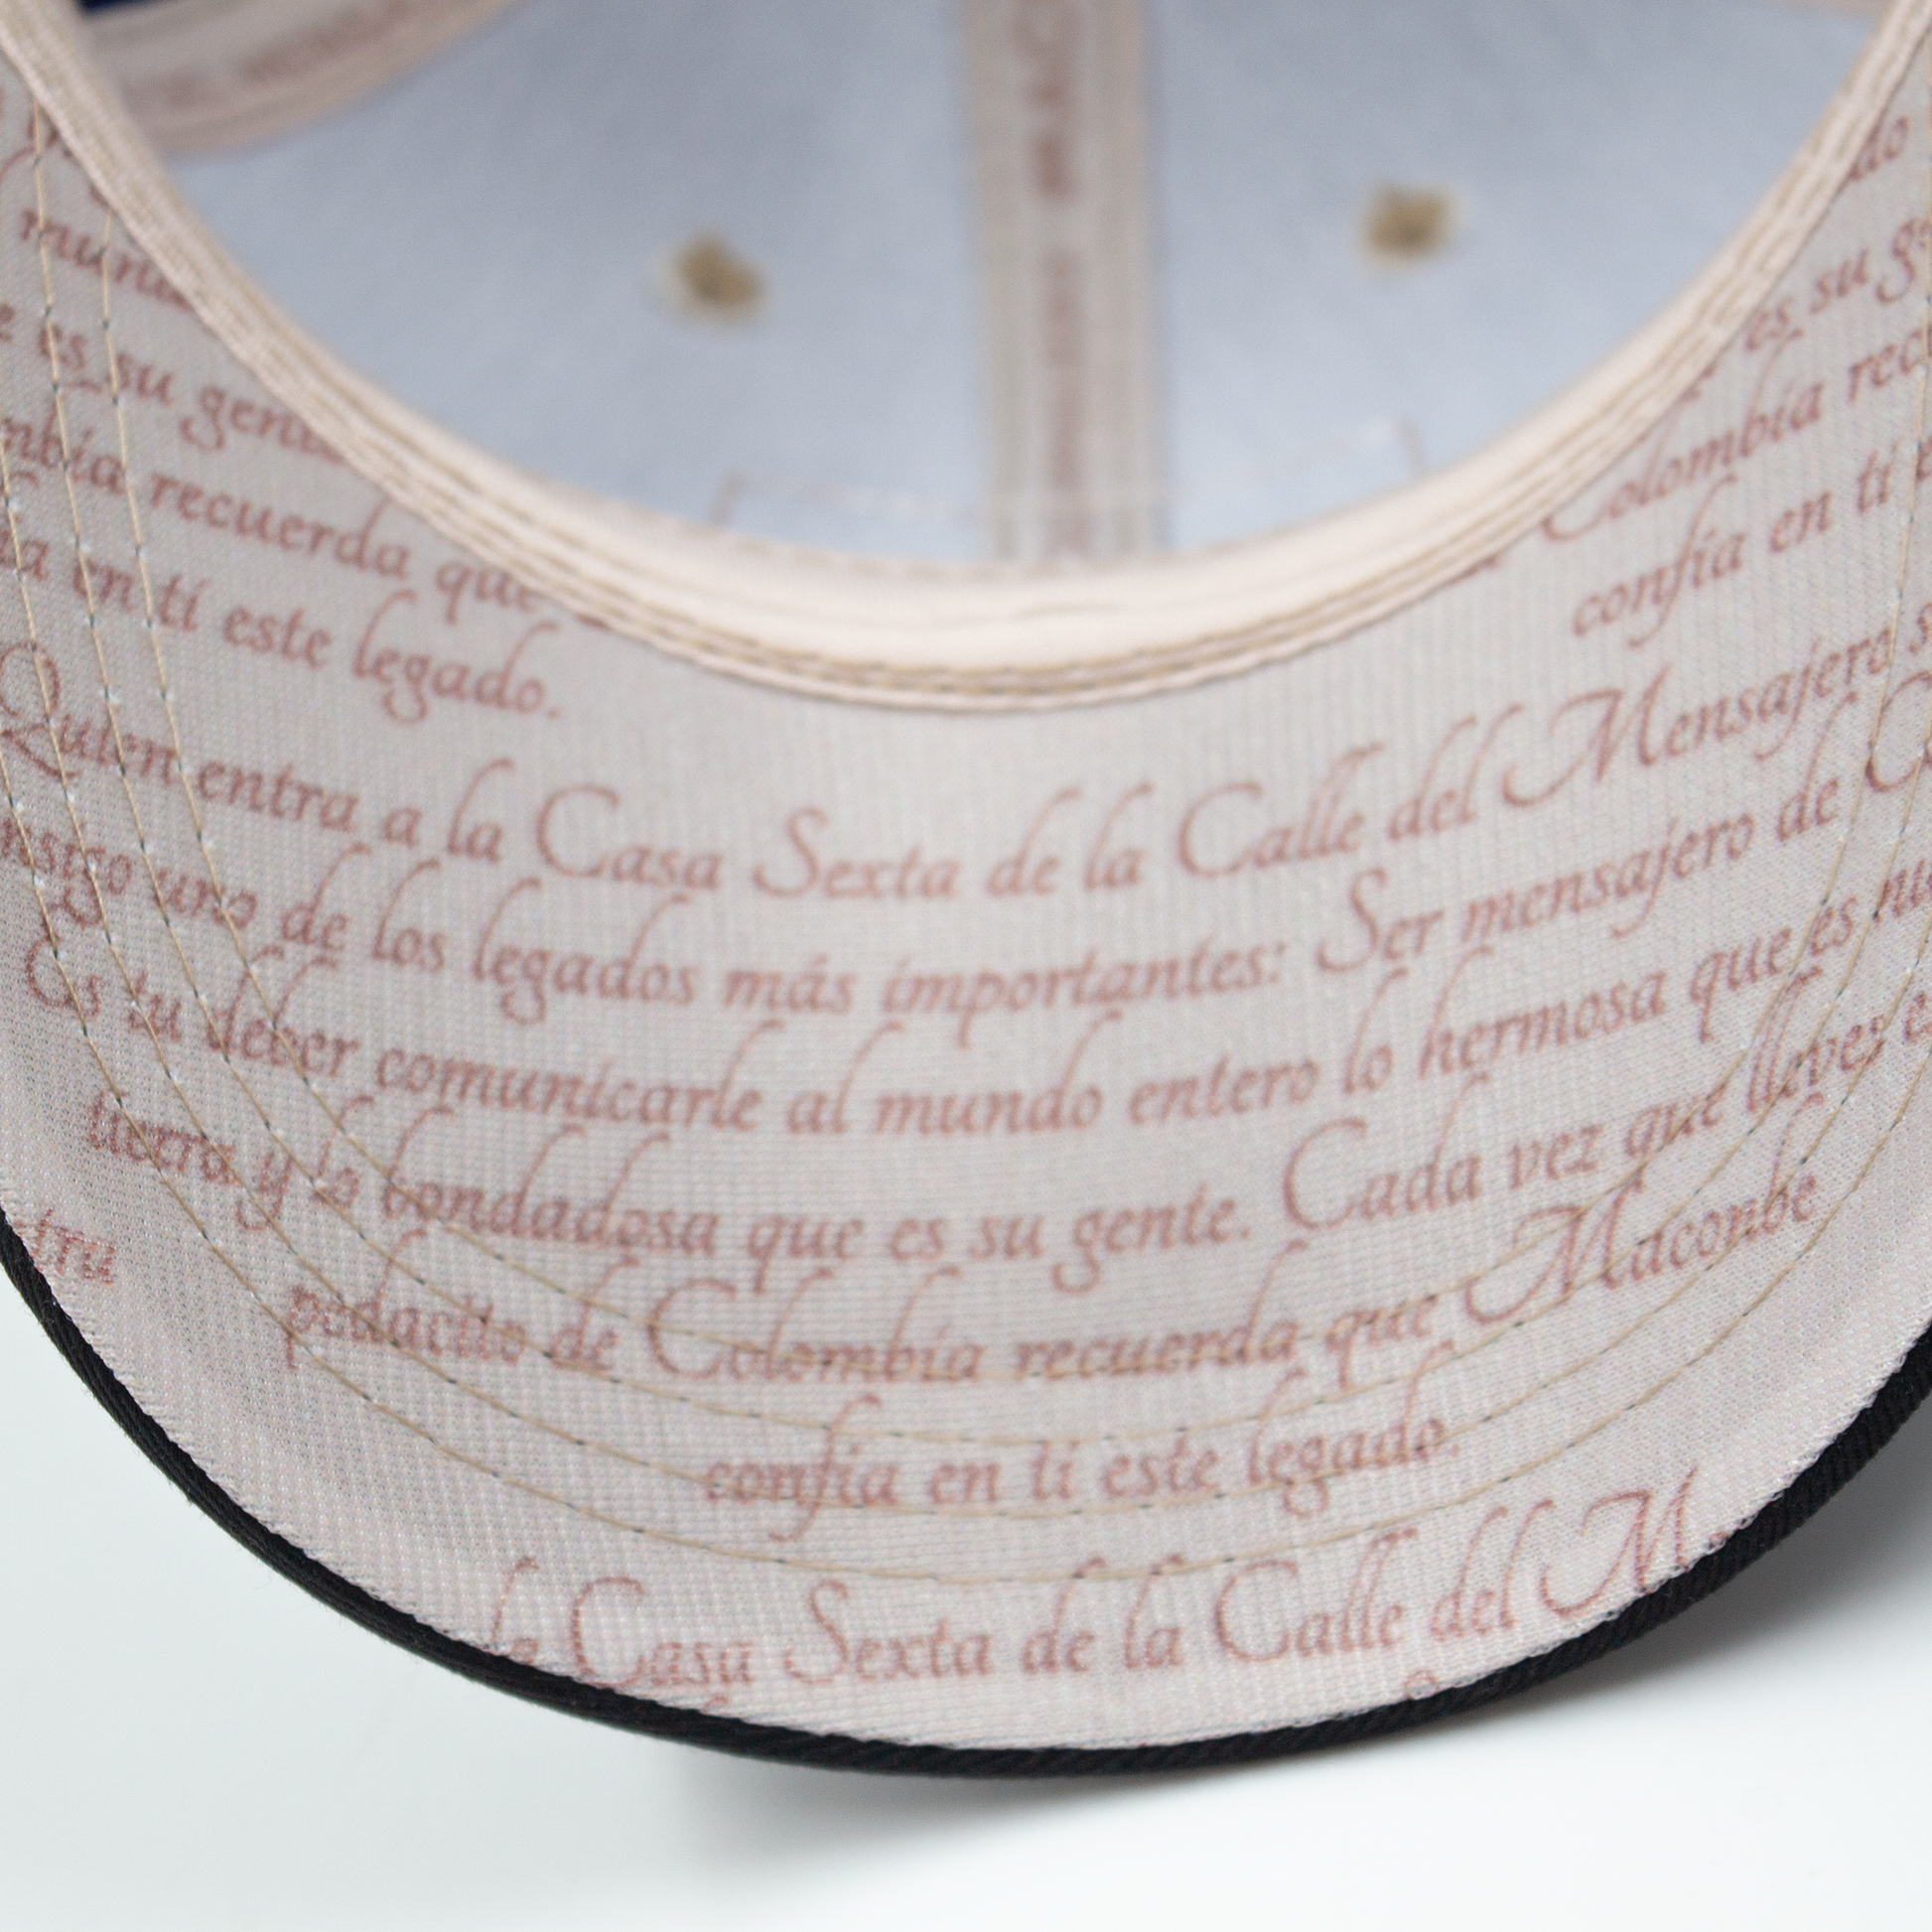 es su gente
Colombia recuerda que
en ti este legado.
confía en ti
Quien entra a la Casa Sexta de la Calle del Mensajero
uno de los legados más importantes: Ser mensajero de
Es tu deber comunicarle al mundo entero lo hermosa que es
tierra y lo bondadosa que es su gente. Cada vez que lleves
pedacito de Colombia recuerda que Macombe
confía en ti este legado.
Casa Sexta de la Calle del M